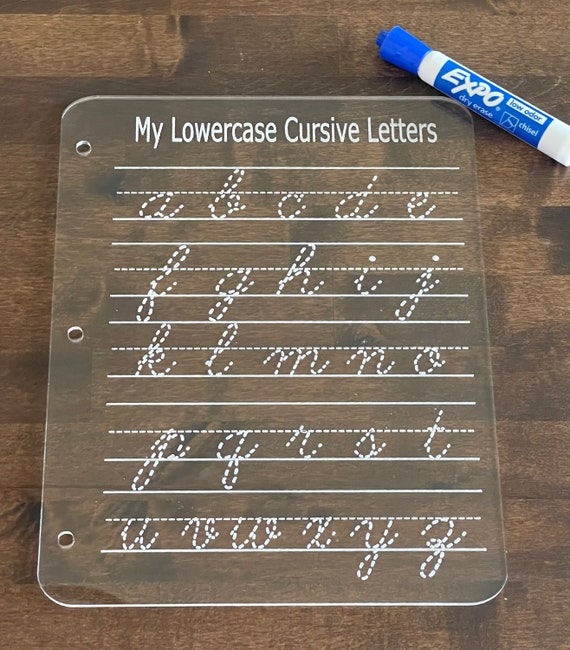 My Lowercase Cursive Letters
a b c d e
f g h i j
k l m n o
p q r s t
u v w x y z
EXPO low odor
dry erase chisel